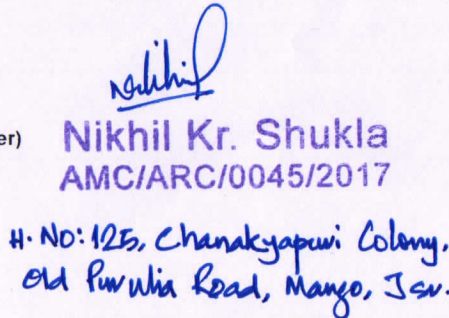 Nikhil
er)
Nikhil Kr. Shukla
AMC/ARC/0045/2017
H. NO: 125, Chanakyapuri Colony,
Old Purulia Road, Mango, Jsr.